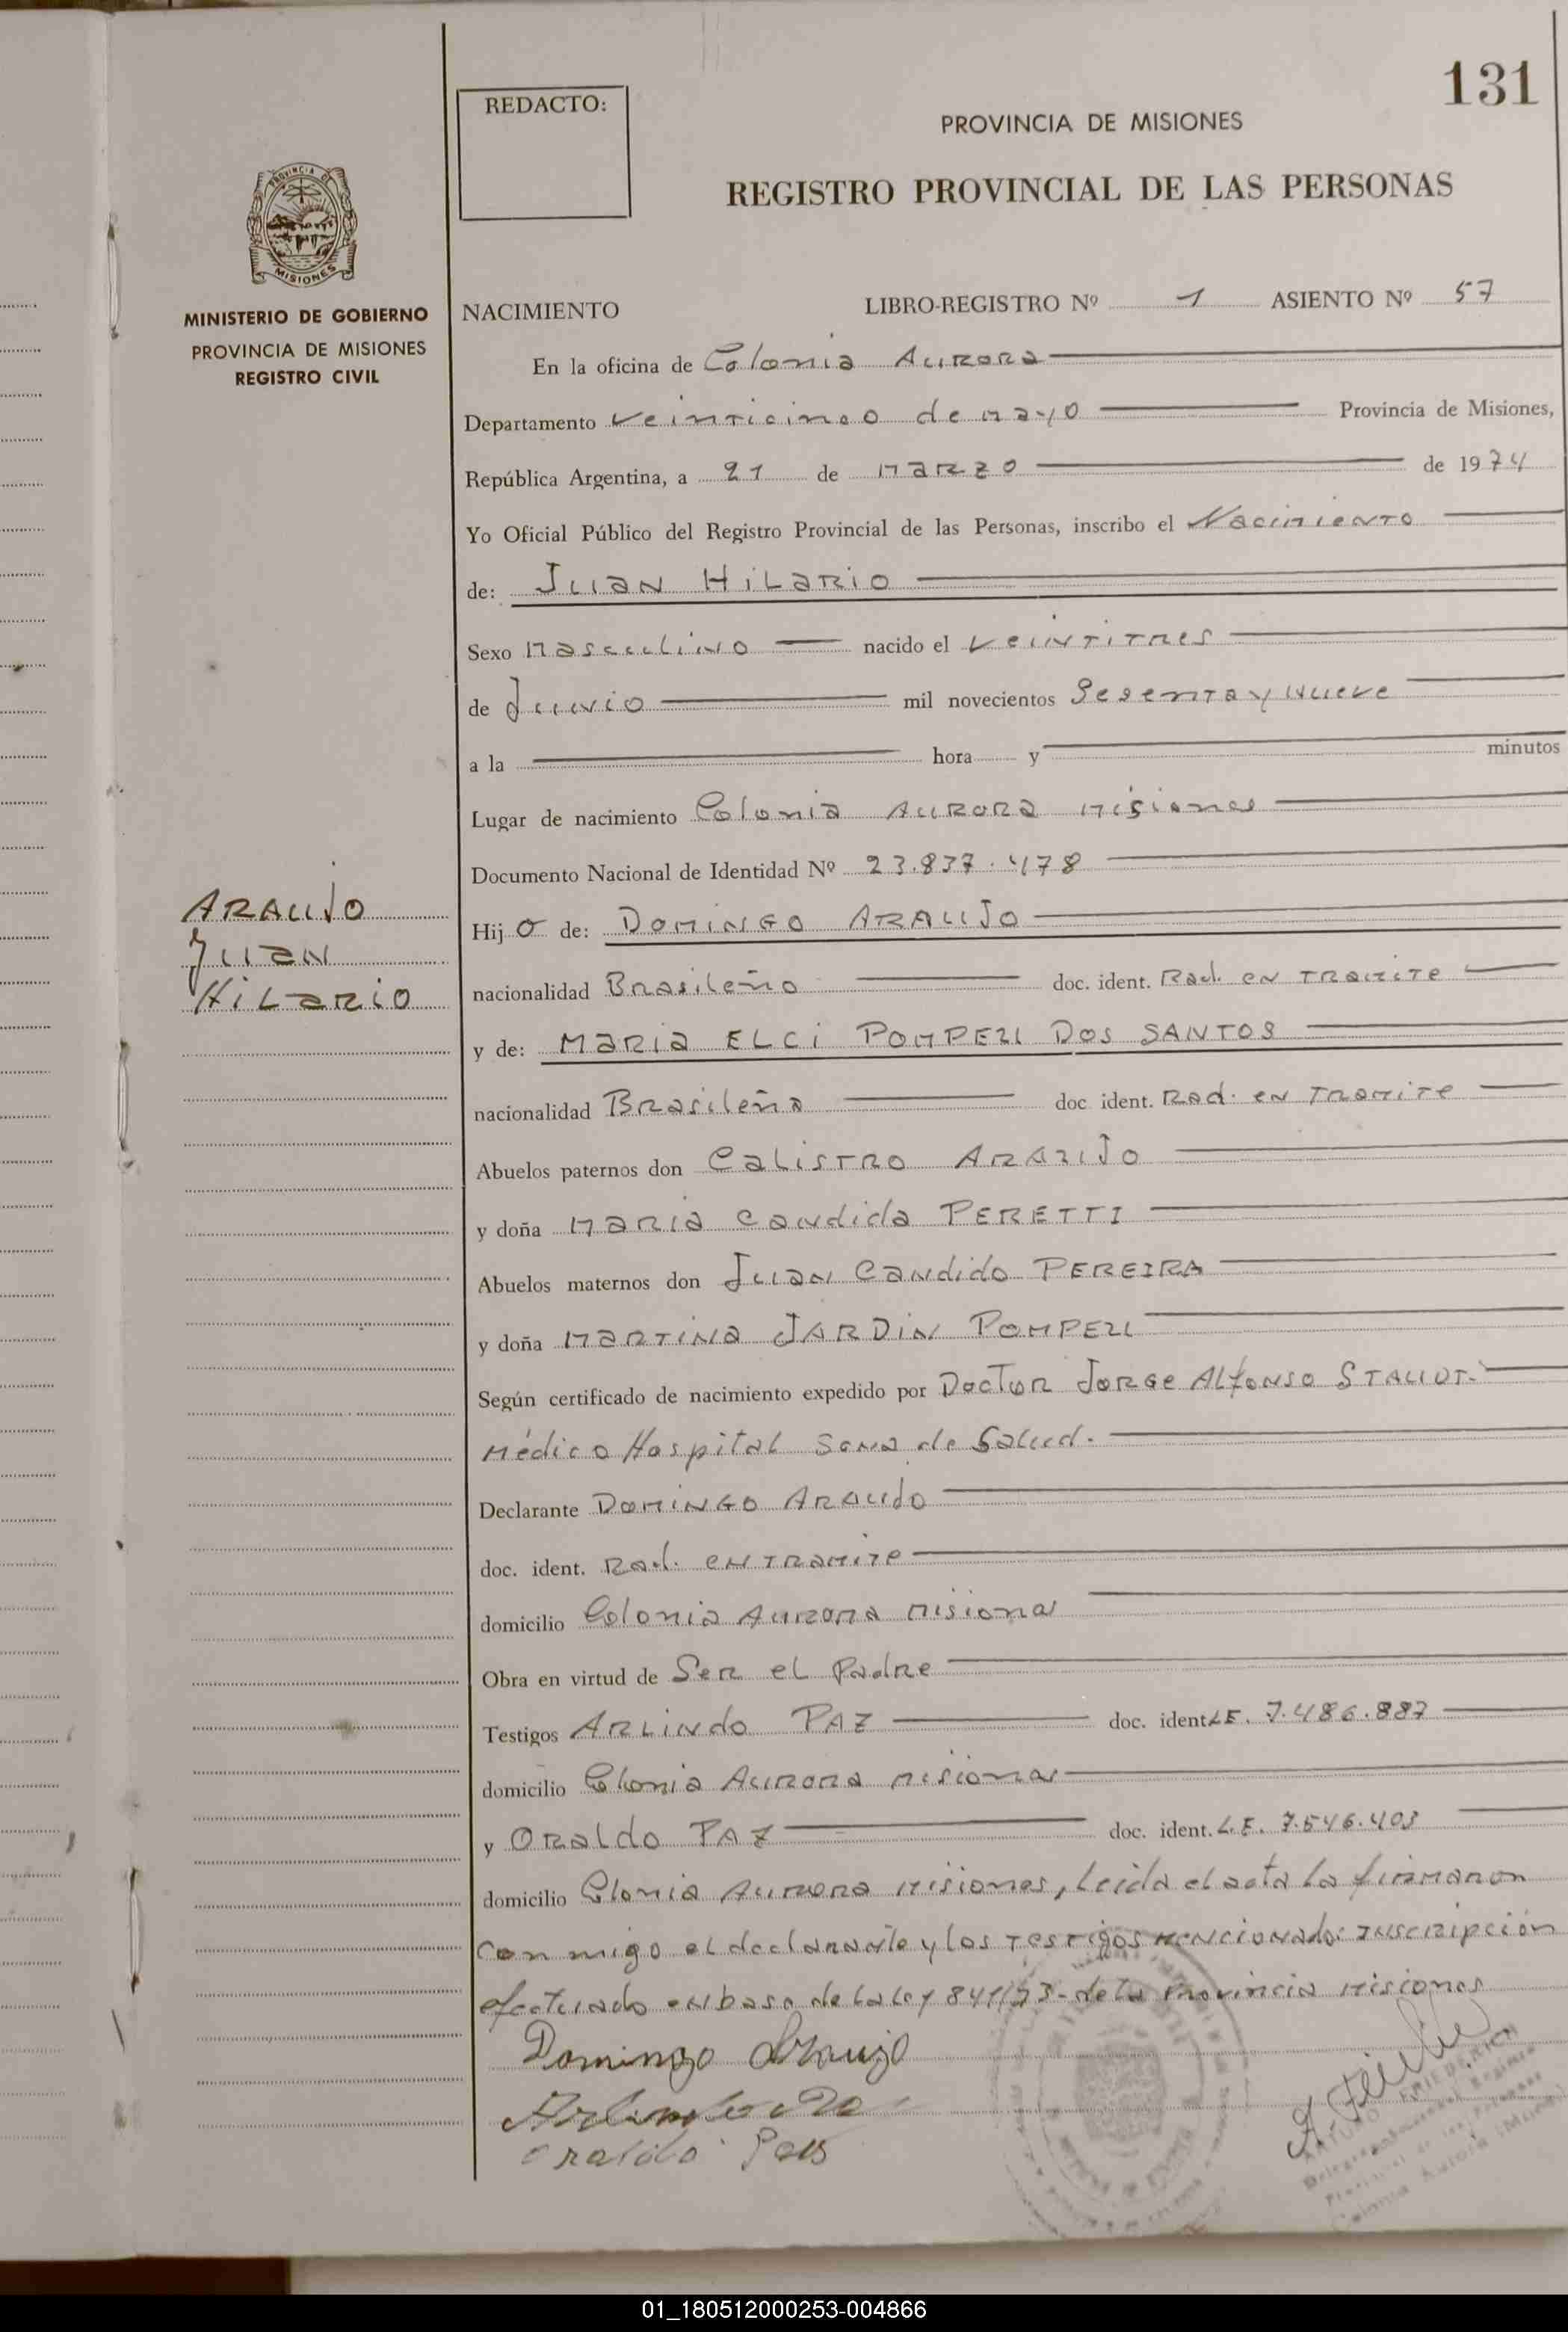 131
REDACTO:
PROVINCIA DE MISIONES
REGISTRO PROVINCIAL DE LAS PERSONAS
PROVINCIA DE
MISIONES
MINISTERIO DE GOBIERNO
PROVINCIA DE MISIONES
REGISTRO CIVIL
NACIMIENTO LIBRO-REGISTRO Nº 1 ASIENTO Nº 57
En la oficina de Colonia Aurora
Departamento veinticinco de mayo Provincia de Misiones,
República Argentina, a 21 de marzo de 1974
Yo Oficial Público del Registro Provincial de las Personas, inscribo el Nacimiento
de: Juan Hilario
Sexo masculino nacido el veintitres
de Junio mil novecientos Sesenta y nueve
a la hora y minutos
Lugar de nacimiento Colonia Aurora misiones
Documento Nacional de Identidad Nº 23.837.478
ARAUJO
Juan
Hilario
Hijo de: DOMINGO ARAUJO
nacionalidad Brasileño doc. ident. Rad. en tramite
y de: MARIA ELCI POMPEU DOS SANTOS
nacionalidad Brasileña doc ident. Rad. en Tramite
Abuelos paternos don Calistro ARAUJO
y doña maria candida PERETTI
Abuelos maternos don Juan Candido PEREIRA
y doña martina JARDIN POMPEU
Según certificado de nacimiento expedido por Doctor Jorge Alfonso
Médico Hospital de Salud.
Declarante DOMINGO Araujo
doc. ident. Rad. en tramite
domicilio Colonia Aurora misiones
Obra en virtud de Ser el Padre
Testigos ARLINdo PAZ doc. ident LE. 7.486.887
domicilio Colonia Aurora misiones
y Oraldo PAZ doc. ident. L.E. 7.546.403
domicilio Colonia Aurora misiones, leida el acta la firmaron
con migo el declarante y los testigos mencionados inscripción
efectuado en base de la ley 841/73- de la Provincia misiones
Domingo Araujo
Oraldo
Colonia Aurora
01_180512000253-004866